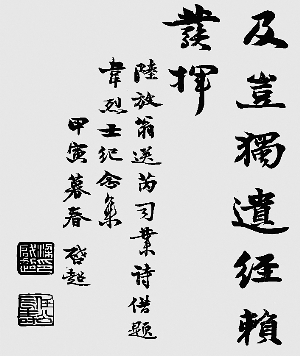 及豈獨遺經賴
發揮
陸放翁送芮司業詩借題
韋烈士紀念集
甲寅暮春 啓超